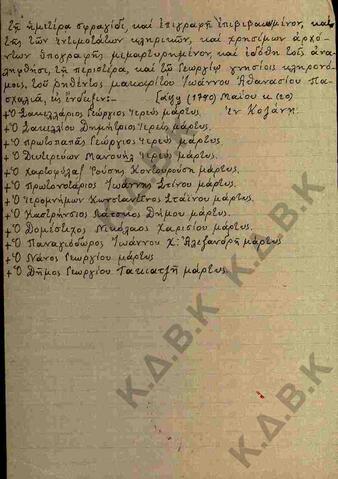 τῇ ἡμετέρᾳ σφραγίδι, καὶ ἐπιγραφῇ ἐπιβεβαιωμένον, καὶ
τῇ τῶν ἐντιμοτάτων κληρικῶν, καὶ χρησίμων ἀρχό-
ντων ὑπογραφῇ μεμαρτυρημένον, καὶ ἐδόθη τοῖς
τῇ περιστέρᾳ, καὶ τῷ Γεωργίῳ γνησίοις κληρονό-
μοις, τοῦ ῥηθέντος μακαρίτου Ἰωάννου Ἀθανασίου Πα
σχαλιᾶ, εἰς ἔνδειξιν:- (1770) Μαΐου κ (20)
+ Ὁ Σακελλάριος Γεώργιος Ἱερεύς μάρτυς. ἐν Κοζάνῃ
+ Ὁ Σακελλίου Δημήτριος Ἱερεύς μάρτυς.
+ Ὁ πρωτοπαπᾶς Γεώργιος Ἱερεύς μάρτυς
+ Ὁ Δευτερεύων Μανουὴλ Ἱερεύς μάρτυς.
+ Ὁ Χαρτοφύλαξ Ῥούσης Κοντορούση μάρτυς.
+ Ὁ Πρωτονοτάριος Ἰωάννης Στίνου μάρτυς.
+ Ὁ Ἱερομνήμων Κωνσταντῖνος Στάϊνου μάρτυς.
+ Ὁ Καστρήνσιος Δήμου μάρτυς.
+ Ὁ Δομέστιχος Νικόλαος Χαρισίου μάρτυς.
+ Ὁ Παναγιόδωρος Ἰωάννου Χ: Ἀλεξανδρῆ μάρτυς
+ Ὁ Νάνος Γεωργίου μάρτυς
+ Ὁ Δῆμος Γεωργίου Τακιατζῆ μάρτυς.
Κ.Δ.Β.Κ
Κ.Δ.Β.Κ
Κ.Δ.Β.Κ